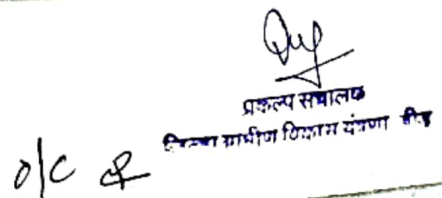 प्रकल्प संचालक
जिल्हा ग्रामीण विकास यंत्रणा बीड
o/c